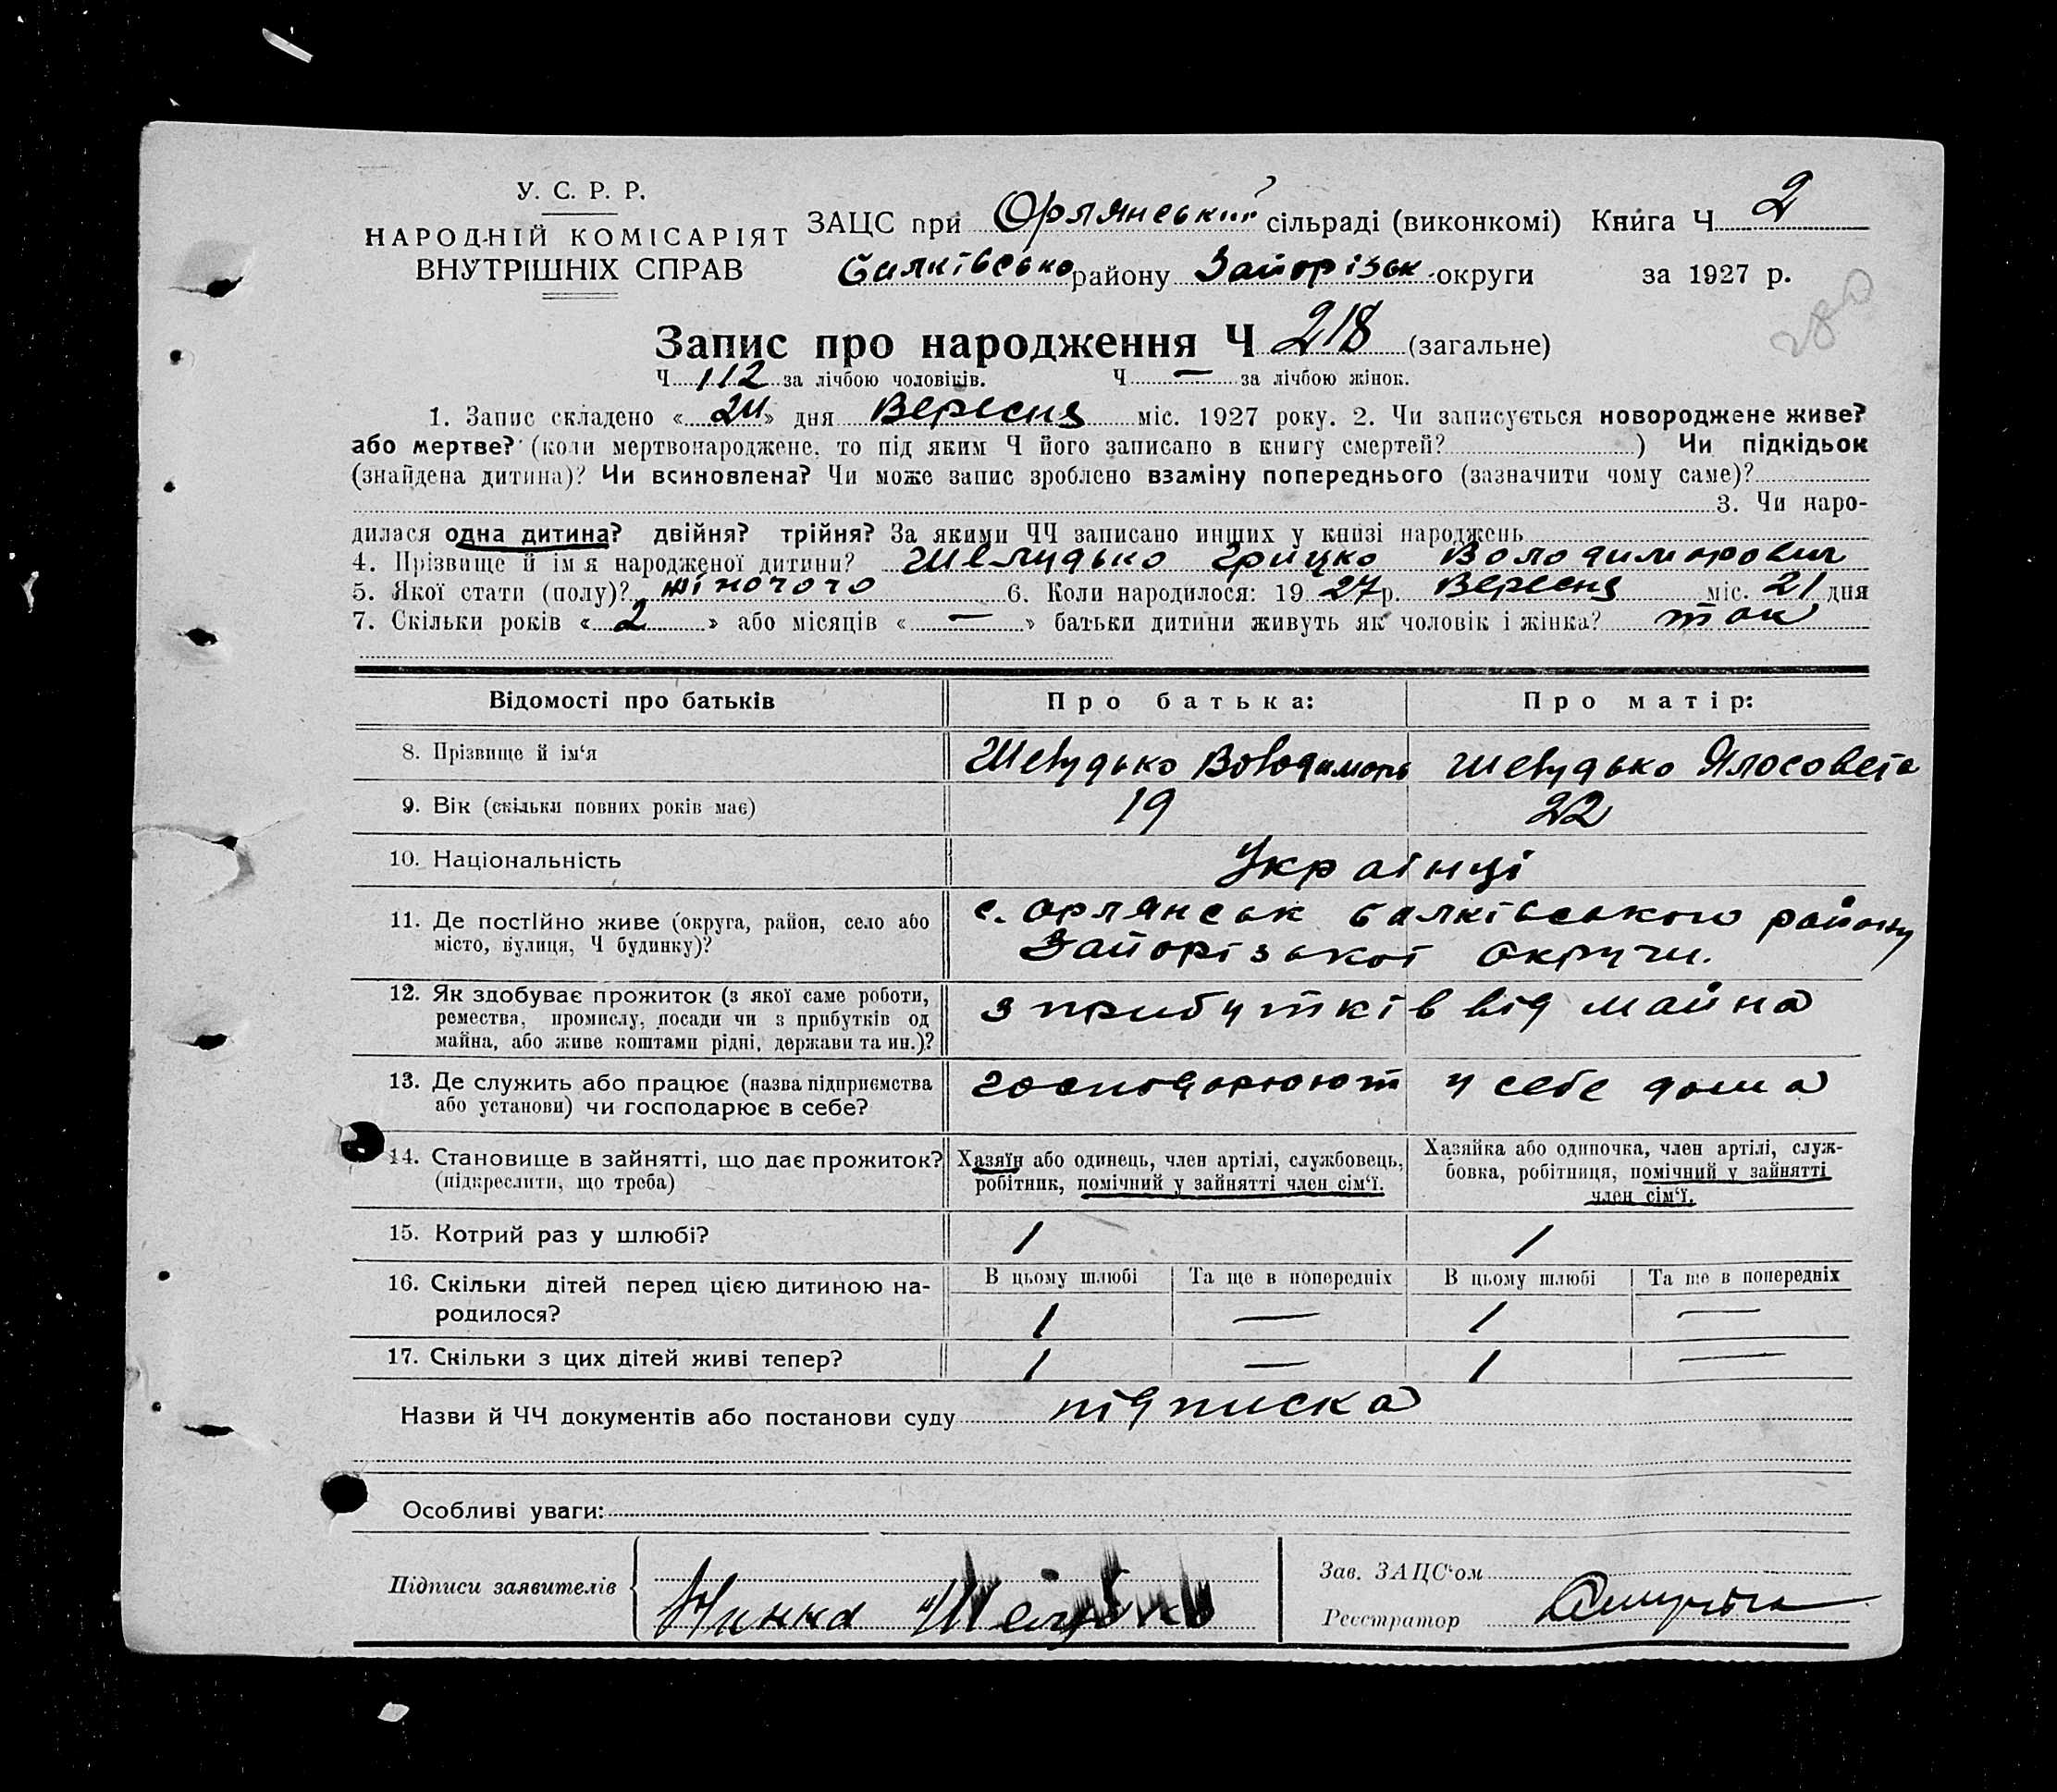 У. С. Р. Р.
НАРОДНІЙ КОМІСАРІЯТ
ВНУТРІШНІХ СПРАВ
ЗАЦС при Орлянській сільраді (виконкомі) Книга Ч 2
Балківсько району Запоріськ. округи за 1927 р.
280
Запис про народження Ч 218 (загальне)
Ч 112 за лічбою чоловіків. Ч — за лічбою жінок.
1. Запис складено « 24 » дня Вересня міс. 1927 року. 2. Чи записується новороджене живе?
або мертве? (коли мертвонароджене, то під яким Ч його записано в книгу смертей? ) Чи підкідьок
(знайдена дитина)? Чи всиновлена? Чи може запис зроблено взаміну попереднього (зазначити чому саме)?
3. Чи наро-
дилася одна дитина? двійня? трійня? За якими ЧЧ записано инших у книзі народжень
4. Прізвище й ім я народженої дитини? Шелудько Грицко Володиморович
5. Якої стати (полу)? жіночого 6. Коли народилося: 19 27 р. Вересня міс. 21 дня
7. Скільки років « 2 » або місяців « — » батьки дитини живуть як чоловік і жінка? так
Відомості про батьків Про батька: Про матір:
8. Прізвище й ім‘я Шелудько Володиморь Шелудько Ялосовета
9. Вік (скільки повних років має) 19 22
10. Національність Украінці
11. Де постійно живе (округа, район, село або
місто, вулиця, Ч будинку)?
с. Орлянськ Балківського району
Запорізькоі Округи.
12. Як здобуває прожиток (з якої саме роботи,
ремества, промислу, посади чи з прибутків од
майна, або живе коштами рідні, держави та ин.)?
з прибутків від майна
13. Де служить або працює (назва підприємства
або установи) чи господарює в себе?
господорюют у себе дома
14. Становище в зайнятті, що дає прожиток?
(підкреслити, що треба)
Хазяїн або одинець, член артілі, службовець,
робітник, помічний у зайнятті член сім‘ї.
Хазяйка або одиночка, член артілі, служ-
бовка, робітниця, помічний у зайнятті
член сім‘ї.
15. Котрий раз у шлюбі? 1 1
16. Скільки дітей перед цією дитиною на-
родилося?
В цьому шлюбі Та ще в попередніх В цьому шлюбі Та ще в попередніх
1 — 1 —
17. Скільки з цих дітей живі тепер? 1 — 1 —
Назви й ЧЧ документів або постанови суду підписка
Особливі уваги:
Підписи заявителів
Шелудько
Зав. ЗАЦС‘ом
Реєстратор